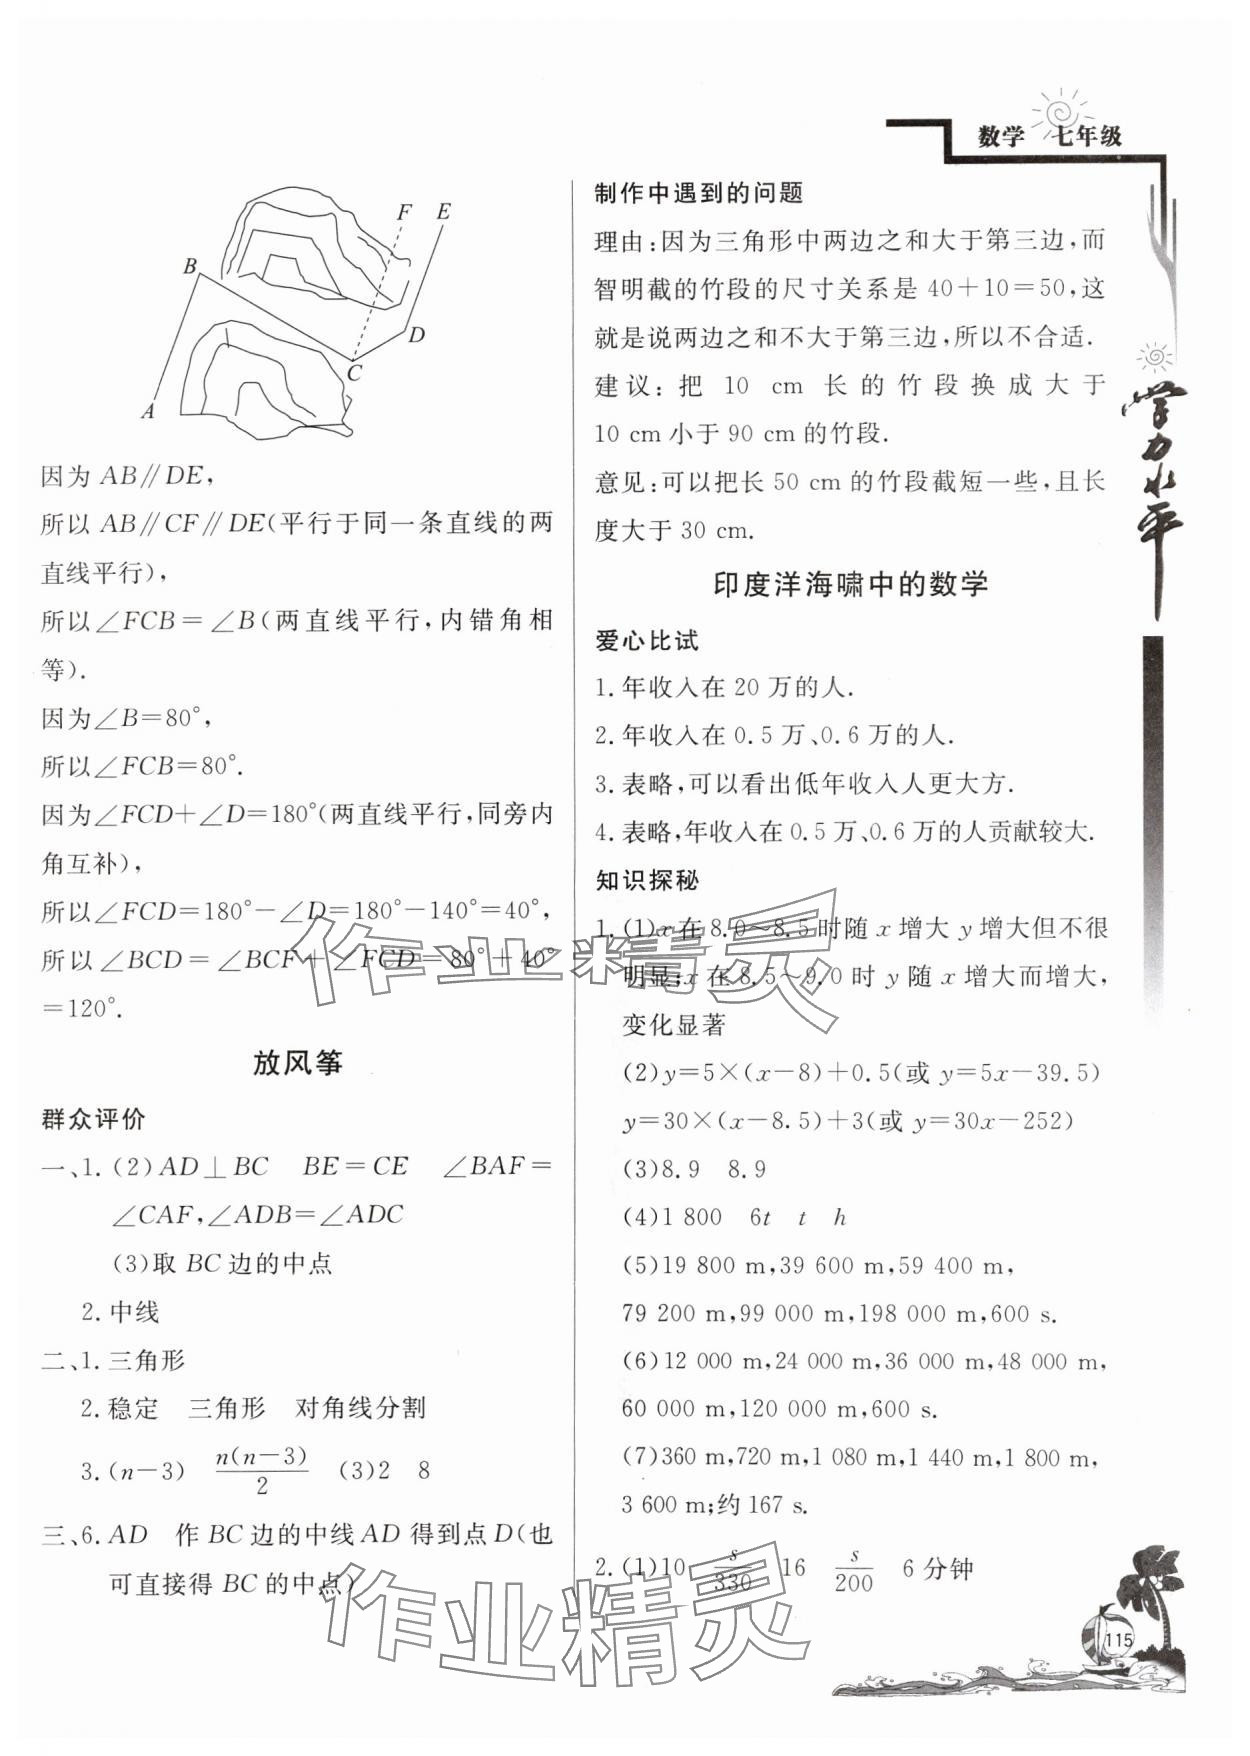 数学 七年级
F E
B
D
C
A
因为 AB∥DE，
所以 AB∥CF∥DE(平行于同一条直线的两
直线平行)，
所以∠FCB＝∠B(两直线平行，内错角相
等).
因为∠B＝80°，
所以∠FCB＝80°.
因为∠FCD＋∠D＝180°(两直线平行，同旁内
角互补)，
所以∠FCD＝180°－∠D＝180°－140°＝40°，
所以∠BCD＝∠BCF＋∠FCD＝80°＋40°
＝120°.
放风筝
群众评价
一、1. (2)AD⊥BC BE＝CE ∠BAF＝
∠CAF，∠ADB＝∠ADC
(3)取 BC 边的中点
2. 中线
二、1. 三角形
2. 稳定 三角形 对角线分割
3. (n－3) n(n－3)/2 (3)2 8
三、6. AD 作 BC 边的中线 AD 得到点 D(也
可直接得 BC 的中点)
制作中遇到的问题
理由：因为三角形中两边之和大于第三边，而
智明截的竹段的尺寸关系是 40＋10＝50，这
就是说两边之和不大于第三边，所以不合适.
建议：把 10 cm 长的竹段换成大于
10 cm 小于 90 cm 的竹段.
意见：可以把长 50 cm 的竹段截短一些，且长
度大于 30 cm.
印度洋海啸中的数学
爱心比试
1. 年收入在 20 万的人.
2. 年收入在 0.5 万、0.6 万的人.
3. 表略，可以看出低年收入人更大方.
4. 表略，年收入在 0.5 万、0.6 万的人贡献较大.
知识探秘
1. (1)x 在 8.0～8.5 时随 x 增大 y 增大但不很
明显；x 在 8.5～9.0 时 y 随 x 增大而增大，
变化显著
(2)y＝5×(x－8)＋0.5(或 y＝5x－39.5)
y＝30×(x－8.5)＋3(或 y＝30x－252)
(3)8.9 8.9
(4)1 800 6t t h
(5)19 800 m，39 600 m，59 400 m，
79 200 m，99 000 m，198 000 m，600 s.
(6)12 000 m，24 000 m，36 000 m，48 000 m，
60 000 m，120 000 m，600 s.
(7)360 m，720 m，1 080 m，1 440 m，1 800 m，
3 600 m；约 167 s.
2. (1)10 s/330 16 s/200 6 分钟
学力水平
115
作业精灵
作业精灵